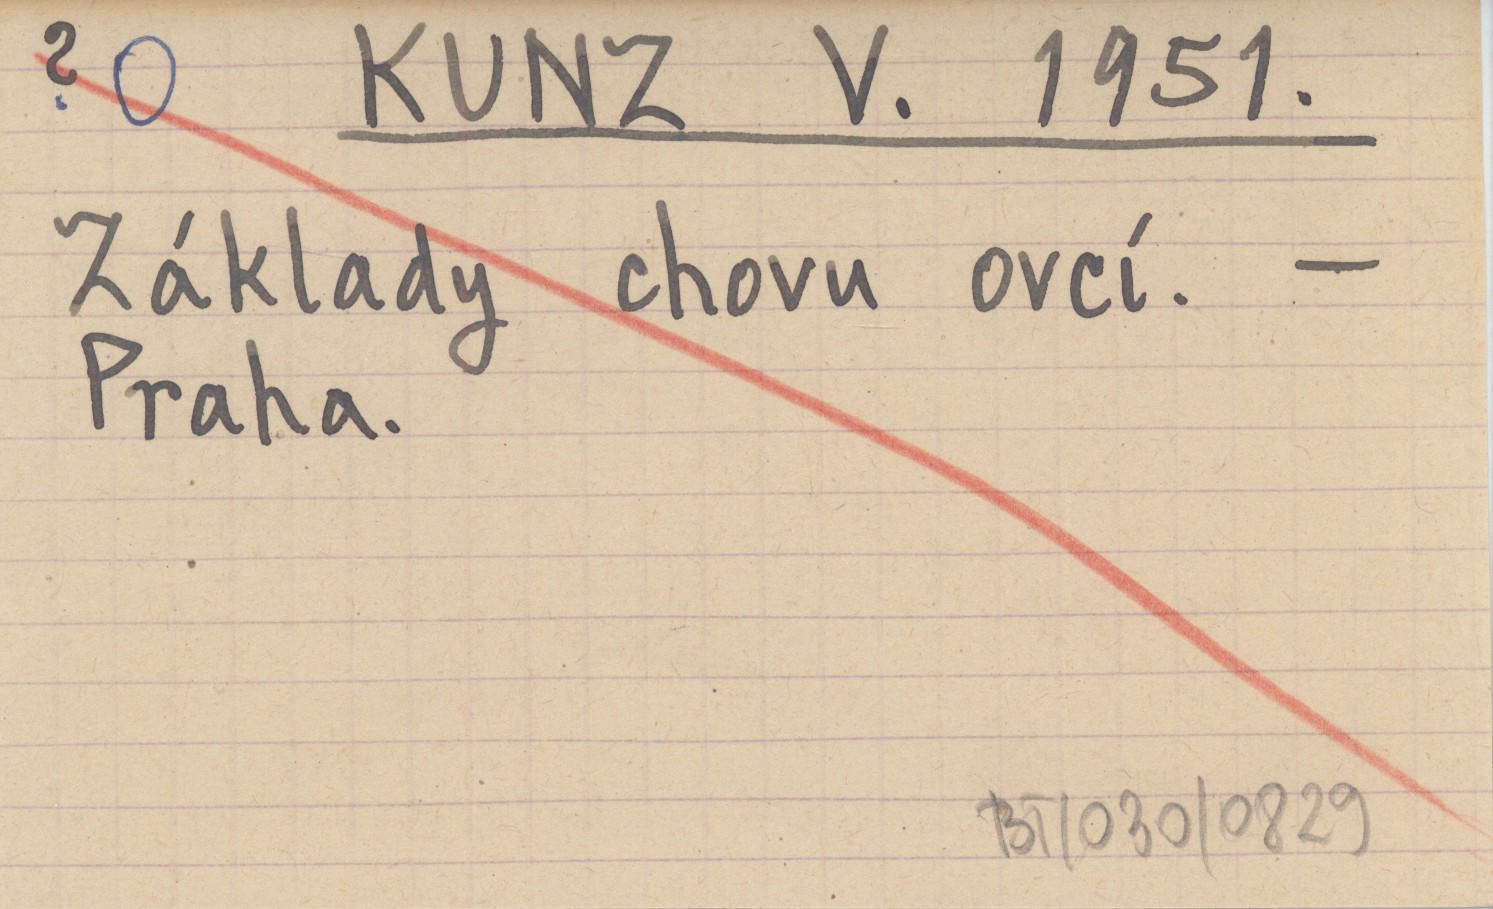 ? O KUNZ V. 1951.
Základy chovu ovcí. —
Praha.
BT/030/0829